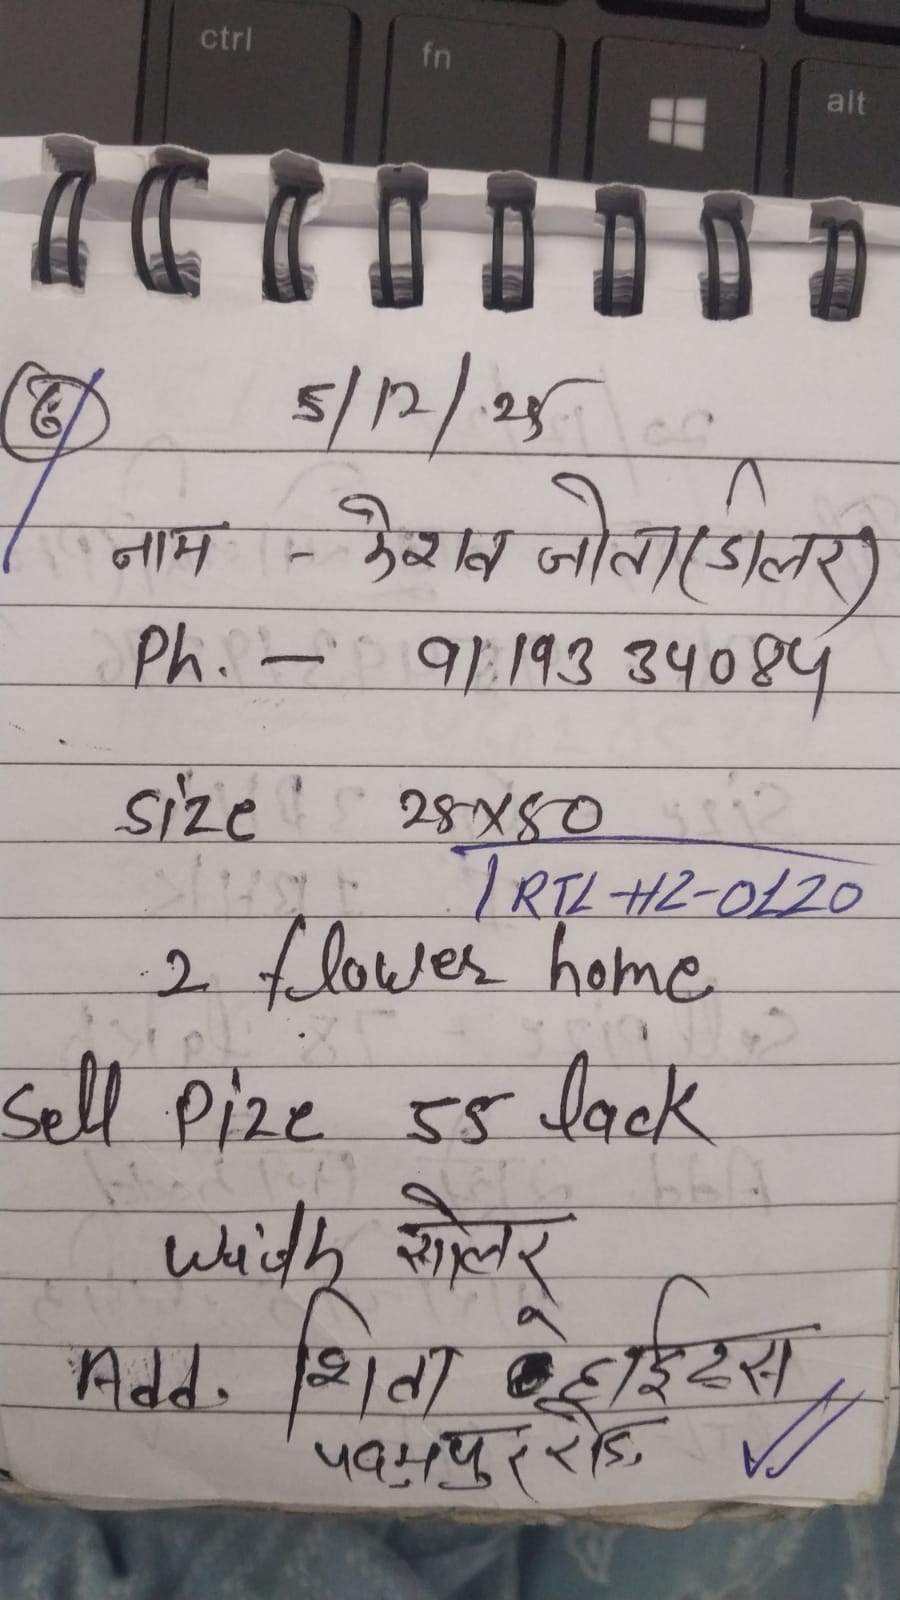 ctrl
fn
alt
6
5/12/25
नाम - केशव जोता (डीलर)
Ph. — 9119334084
Size 28x50
RTL-HZ-0120
2 flower home
Sell Pize 55 lack
width सोलर
Add. शिता हाईट्स
पदमपुर रोड.